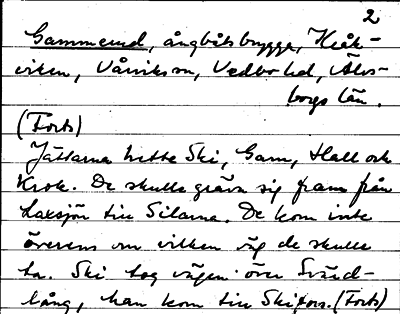 2
Gammerud, ångbåtsbrygga, Kråk-
viken, Vårvikssn, Vedbo hd, Älvs-
borgs län.
(Forts)
Jättarna hette Ski, Garn, Hall och
Krok. De skulle gräva sig fram från
Laxsjön till Silarna. De kom inte
överens om vilken väg de skulle
ta. Ski tog vägen över Svärd-
lång, han kom till Skifors. (Forts)